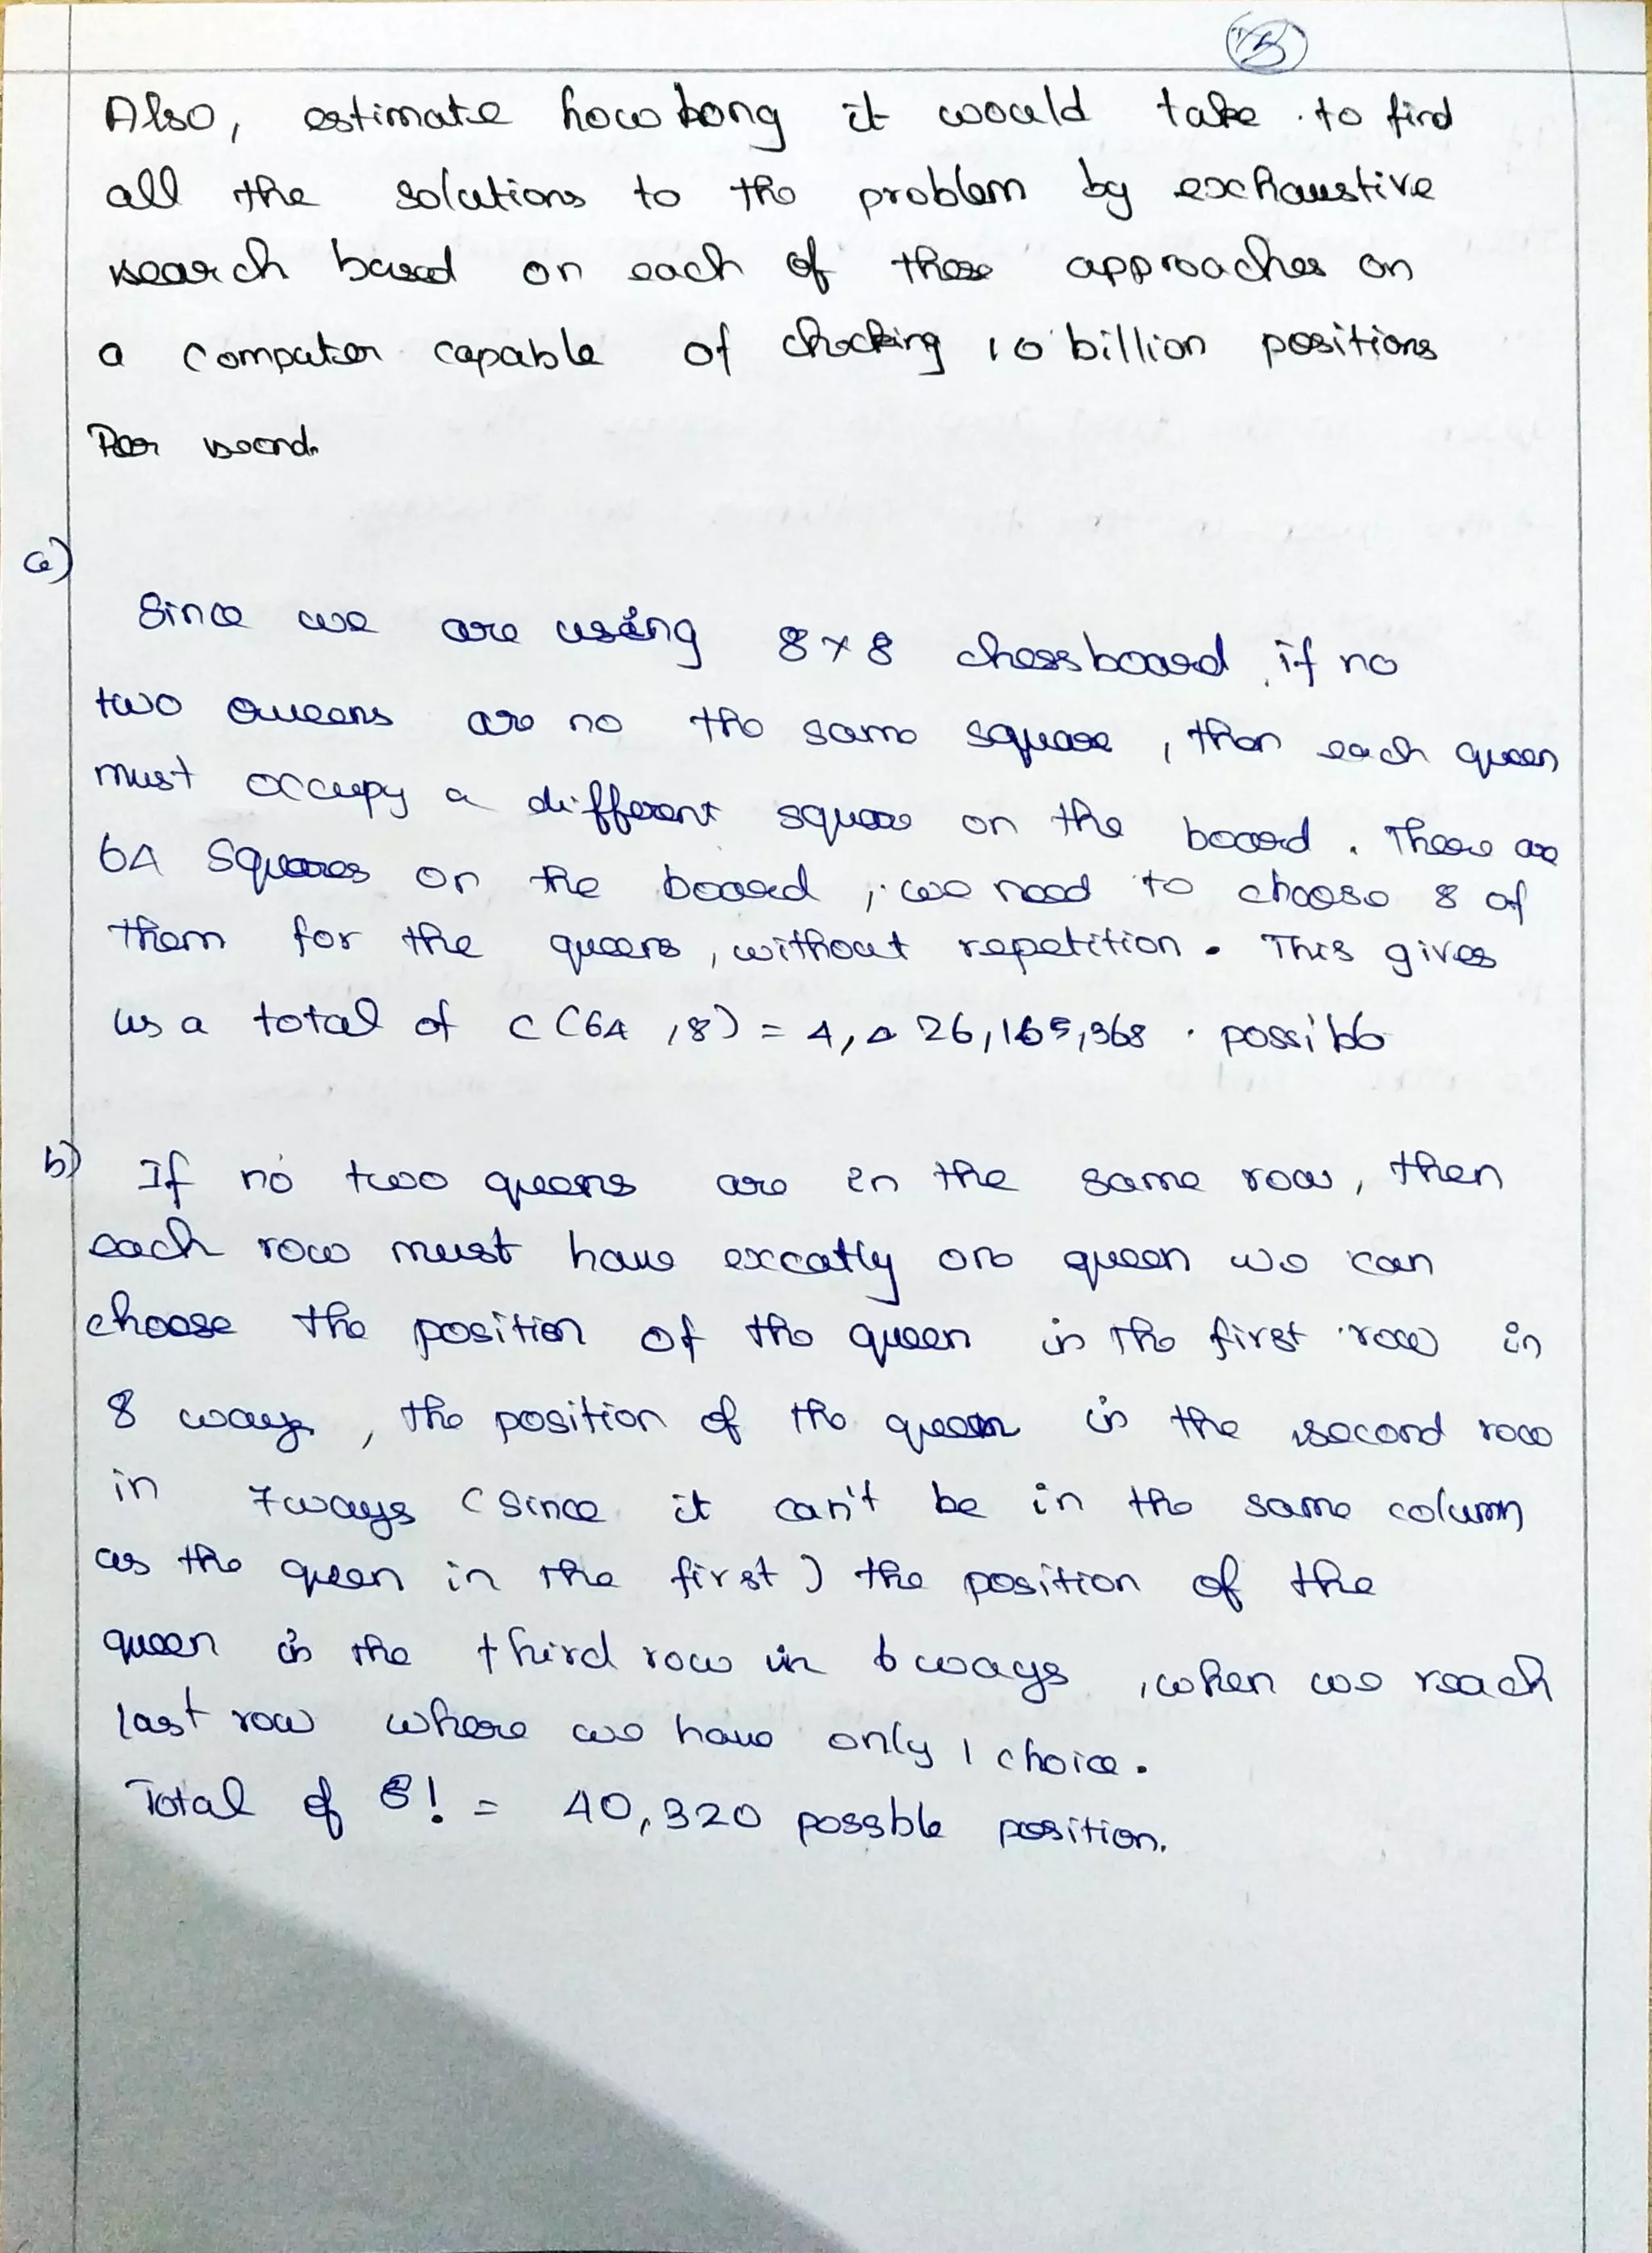 15
Also, estimate how long it would take to find
all the solutions to the problem by exhaustive
search based on each of these approaches on
a computer capable of checking 10 billion positions
Per second.
a)
Since we are using 8 × 8 chessboard, if no
two queens are no the same square, then each queen
must occupy a different square on the board. There are
64 squares on the board, we need to choose 8 of
them for the queens, without repetition. This gives
us a total of C(64,8) = 4,426,165,368 possible
b) If no two queens are in the same row, then
each row must have excatly one queen we can
choose the position of the queen in the first row in
8 ways, the position of the queen in the second row
in 7 ways (since it can't be in the same column
as the queen in the first) the position of the
queen in the third row in 6 ways, when we reach
last row where we have only 1 choice.
Total of 8! = 40,320 possble position.